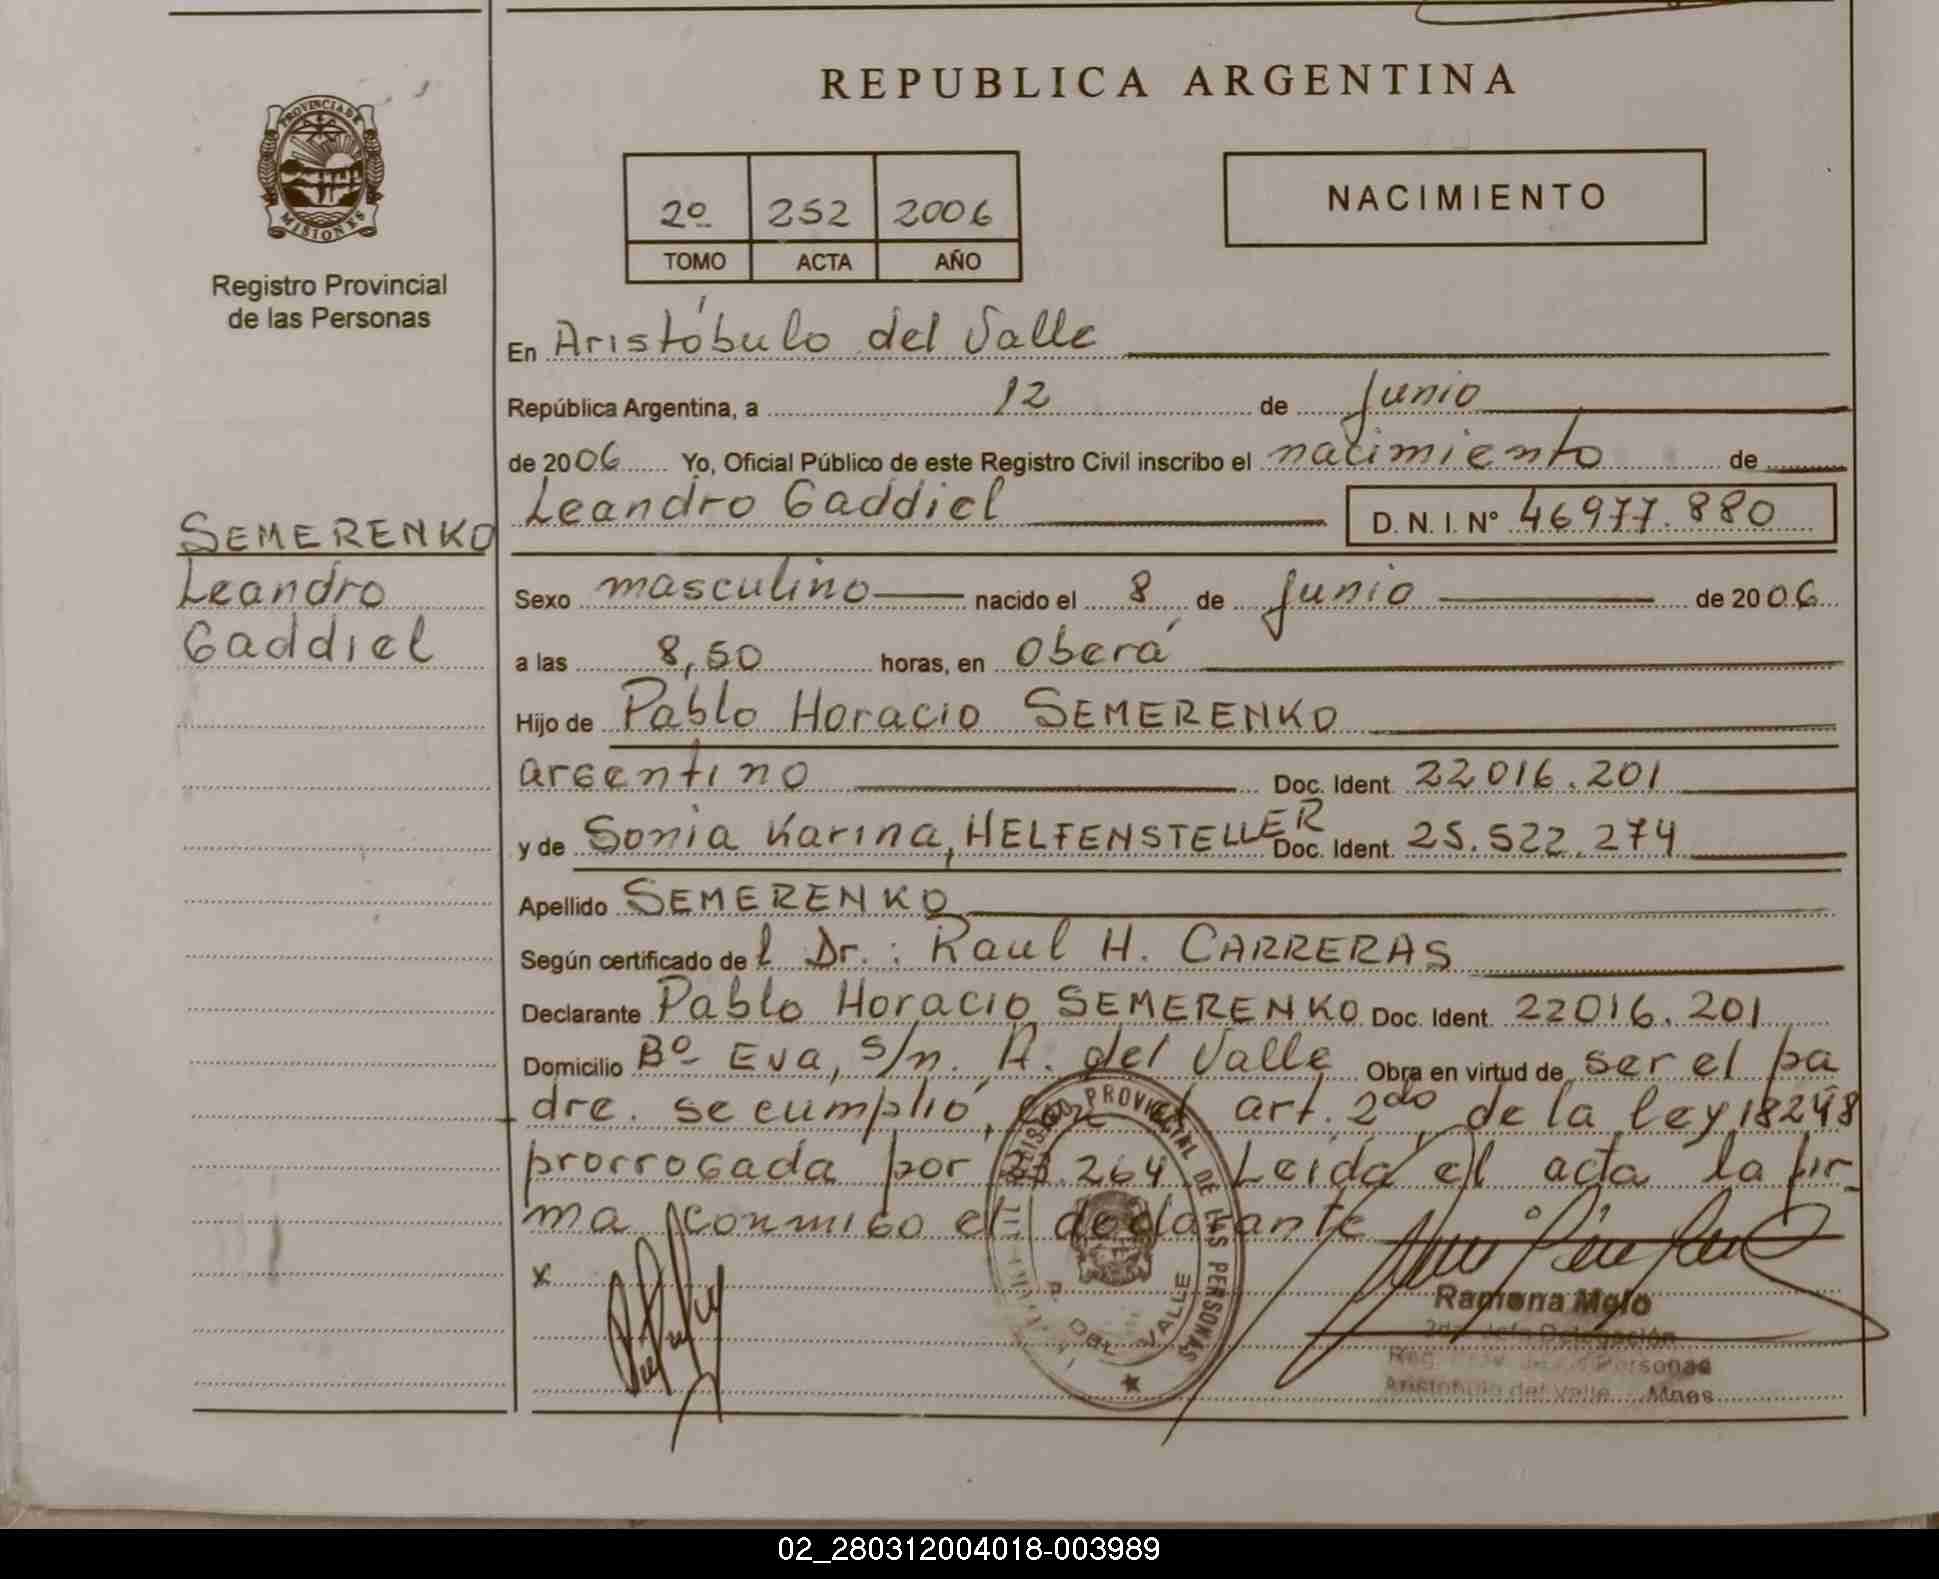 REPUBLICA ARGENTINA
PROVINCIA DE MISIONES
Registro Provincial
de las Personas
2º 252 2006
TOMO ACTA AÑO
NACIMIENTO
En Aristóbulo del Valle
República Argentina, a 12 de Junio
de 2006 Yo, Oficial Público de este Registro Civil inscribo el nacimiento de
Leandro Gaddiel D. N. I. Nº 46977.880
SEMERENKO
Leandro
Gaddiel
Sexo masculino nacido el 8 de Junio de 2006
a las 8,50 horas, en Oberá
Hijo de Pablo Horacio SEMERENKO
argentino Doc. Ident. 22016.201
y de Sonia Karina, HELFENSTELLER Doc. Ident. 25.522.274
Apellido SEMERENKO
Según certificado de l Dr.: Raul H. CARRERAS
Declarante Pablo Horacio SEMERENKO Doc. Ident. 22016.201
Domicilio Bº Eva, s/n. A. del Valle Obra en virtud de ser el pa
dre. se cumplió, con el art. 2do de la ley 18248
prorrogada por .264 Leida el acta la fir-
ma conmigo el declarante
x
REGISTRO PROVINCIAL DE LAS PERSONAS
DEL VALLE
Ramona Melo
2da. Jefe Delegación
Reg. Prov. de las Personas
Aristóbulo del Valle Mnes
02_280312004018-003989